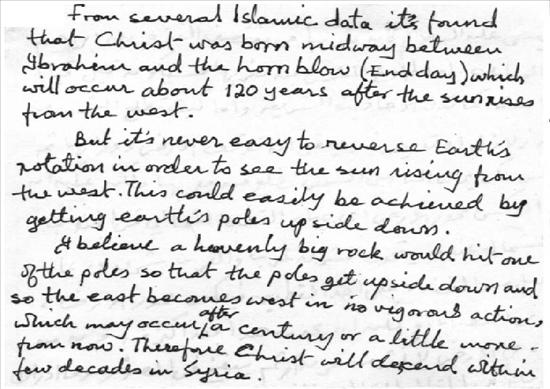 From several Islamic data it's found
that Christ was born midway between
Ibrahim and the horn blow (End day) which
will occur about 120 years after the sun rises
from the west.
But it's never easy to reverse Earth's
rotation in order to see the sun rising from
the west. This could easily be achieved by
getting earth's poles upside down.
I believe a heavenly big rock would hit one
of the poles so that the poles get upside down and
so the east becomes west in no vigorous action,
which may occur after a century or a little more
from now. Therefore Christ will decend within
few decades in Syria.